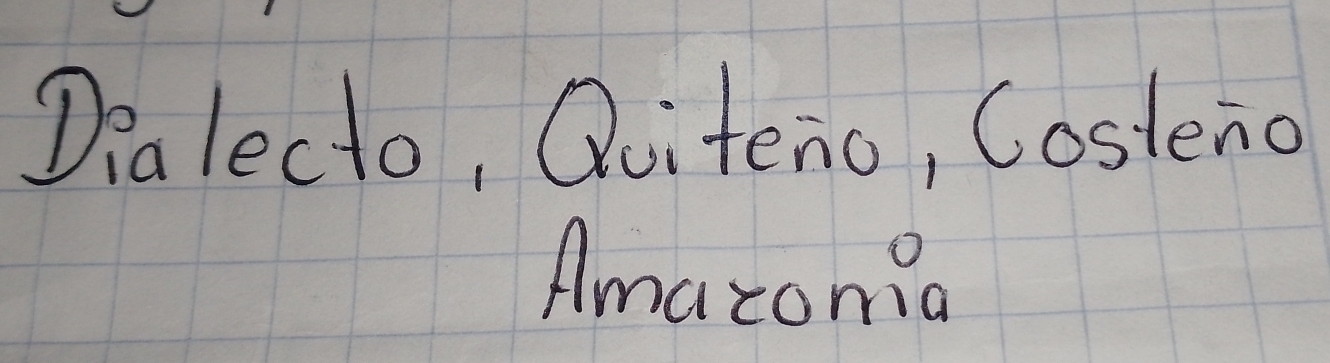 Dialecto, Quiteño, Costeño
Amazonia